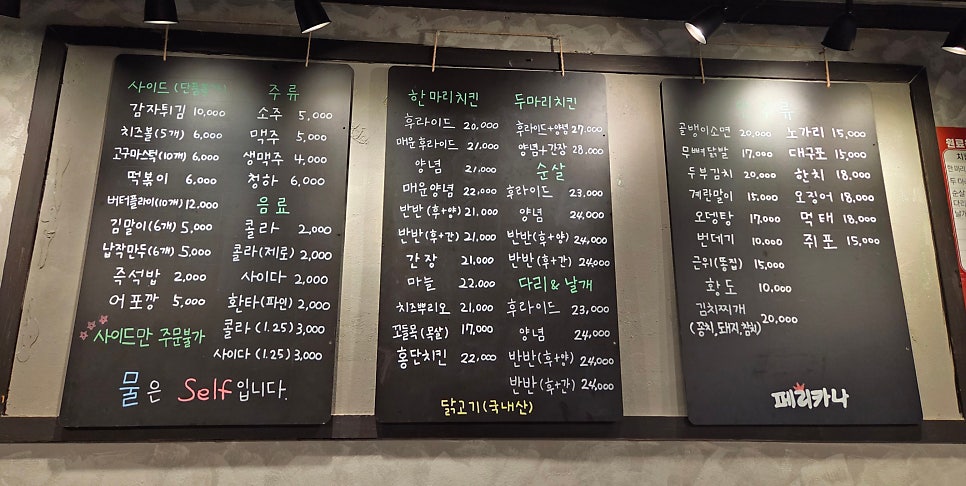 사이드 (단품불가)
감자튀김 10,000
치즈볼(5개) 6,000
고구마스틱(10개) 6,000
떡볶이 6,000
버터플라이(10개) 12,000
김말이(6개) 5,000
납작만두(6개) 5,000
즉석밥 2,000
어포깡 5,000
사이드만 주문불가
주류
소주 5,000
맥주 5,000
생맥주 4,000
청하 6,000
음료
콜라 2,000
콜라(제로) 2,000
사이다 2,000
환타(파인) 2,000
콜라 (1.25) 3,000
사이다 (1.25) 3,000
물은 Self입니다.
한마리치킨
후라이드 20,000
매운후라이드 21,000
양념 21,000
매운양념 22,000
반반(후+양) 21,000
반반(후+간) 21,000
간장 21,000
마늘 22,000
치즈뿌리오 21,000
꼬들목(목살) 17,000
홍단치킨 22,000
두마리치킨
후라이드+양념 27,000
양념+간장 28,000
순살
후라이드 23,000
양념 24,000
반반(후+양) 24,000
반반(후+간) 24,000
다리 & 날개
후라이드 23,000
양념 24,000
반반(후+양) 24,000
반반(후+간) 24,000
닭고기(국내산)
류
골뱅이소면 20,000
무뼈닭발 17,000
두부김치 20,000
계란말이 15,000
오뎅탕 17,000
번데기 10,000
근위(똥집) 15,000
황도 10,000
김치찌개 20,000
(꽁치,돼지,참치)
노가리 15,000
대구포 15,000
한치 18,000
오징어 18,000
먹태 18,000
쥐포 15,000
페리카나